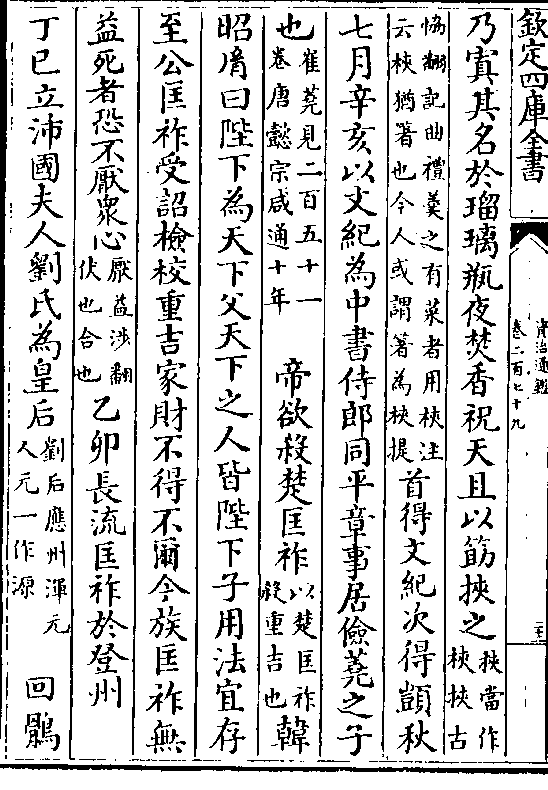 欽定四庫全書
資治通鑑
卷二百七十九
乃寘其名於瑠璃瓶夜焚香祝天且以筯挾之挾當作梜梜古
恊翻記曲禮羮之有菜者用梜注云梜猶著也今人或謂著為梜提首得文紀次得顗秋
七月辛亥以文紀為中書侍郎同平章事居儉蕘之子
也崔蕘見二百五十一卷唐懿宗咸通十年帝欲殺楚匡祚以楚匡祚殺重吉也韓
昭𦙍曰陛下為天下父天下之人皆陛下子用法宜存
至公匡祚受詔檢校重吉家財不得不爾今族匡祚無
益死者恐不厭衆心厭益渉翻伏也合也乙卯長流匡祚於登州
丁巳立沛國夫人劉氏為皇后劉后應州渾元人元一作源回鶻